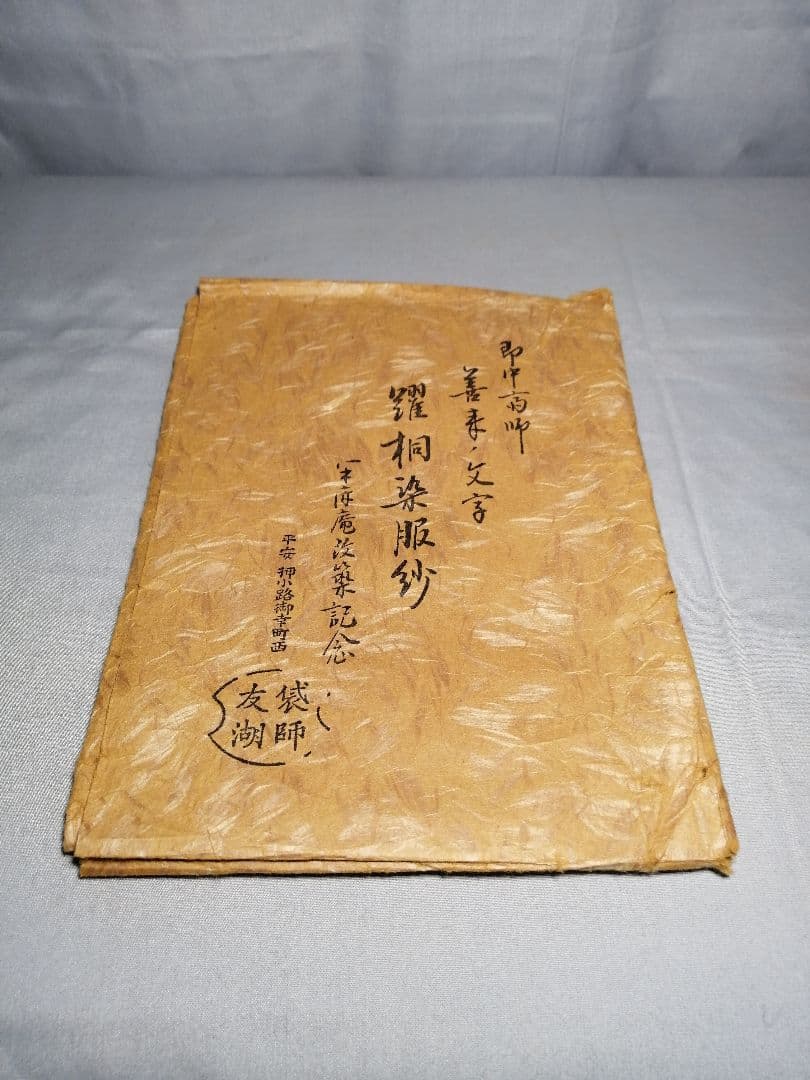 即中斎師
善来ノ文字
躍桐染服紗
半床庵改築記念
平安 押小路御幸町西
袋師
友湖